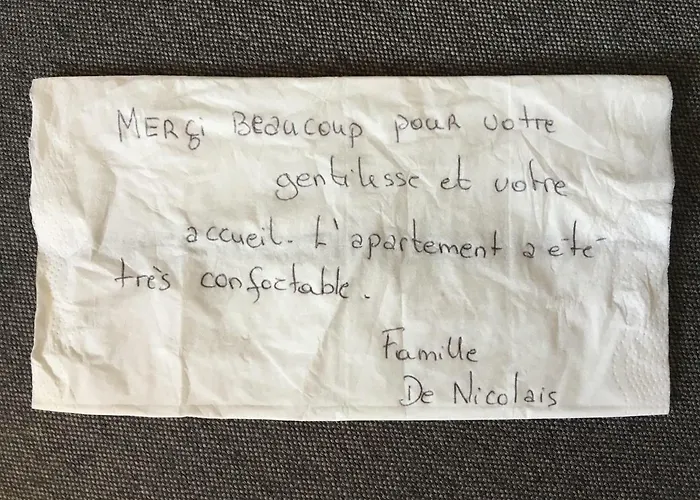 MERçi BeaucouP pouR votre
gentilesse et votre
accueil. L'apartement a été
très confortable.
Famille
De Nicolais